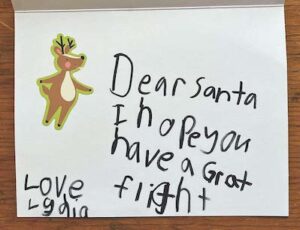 Dear santa
I hope you
have a Grat
flight
Love
Lydia